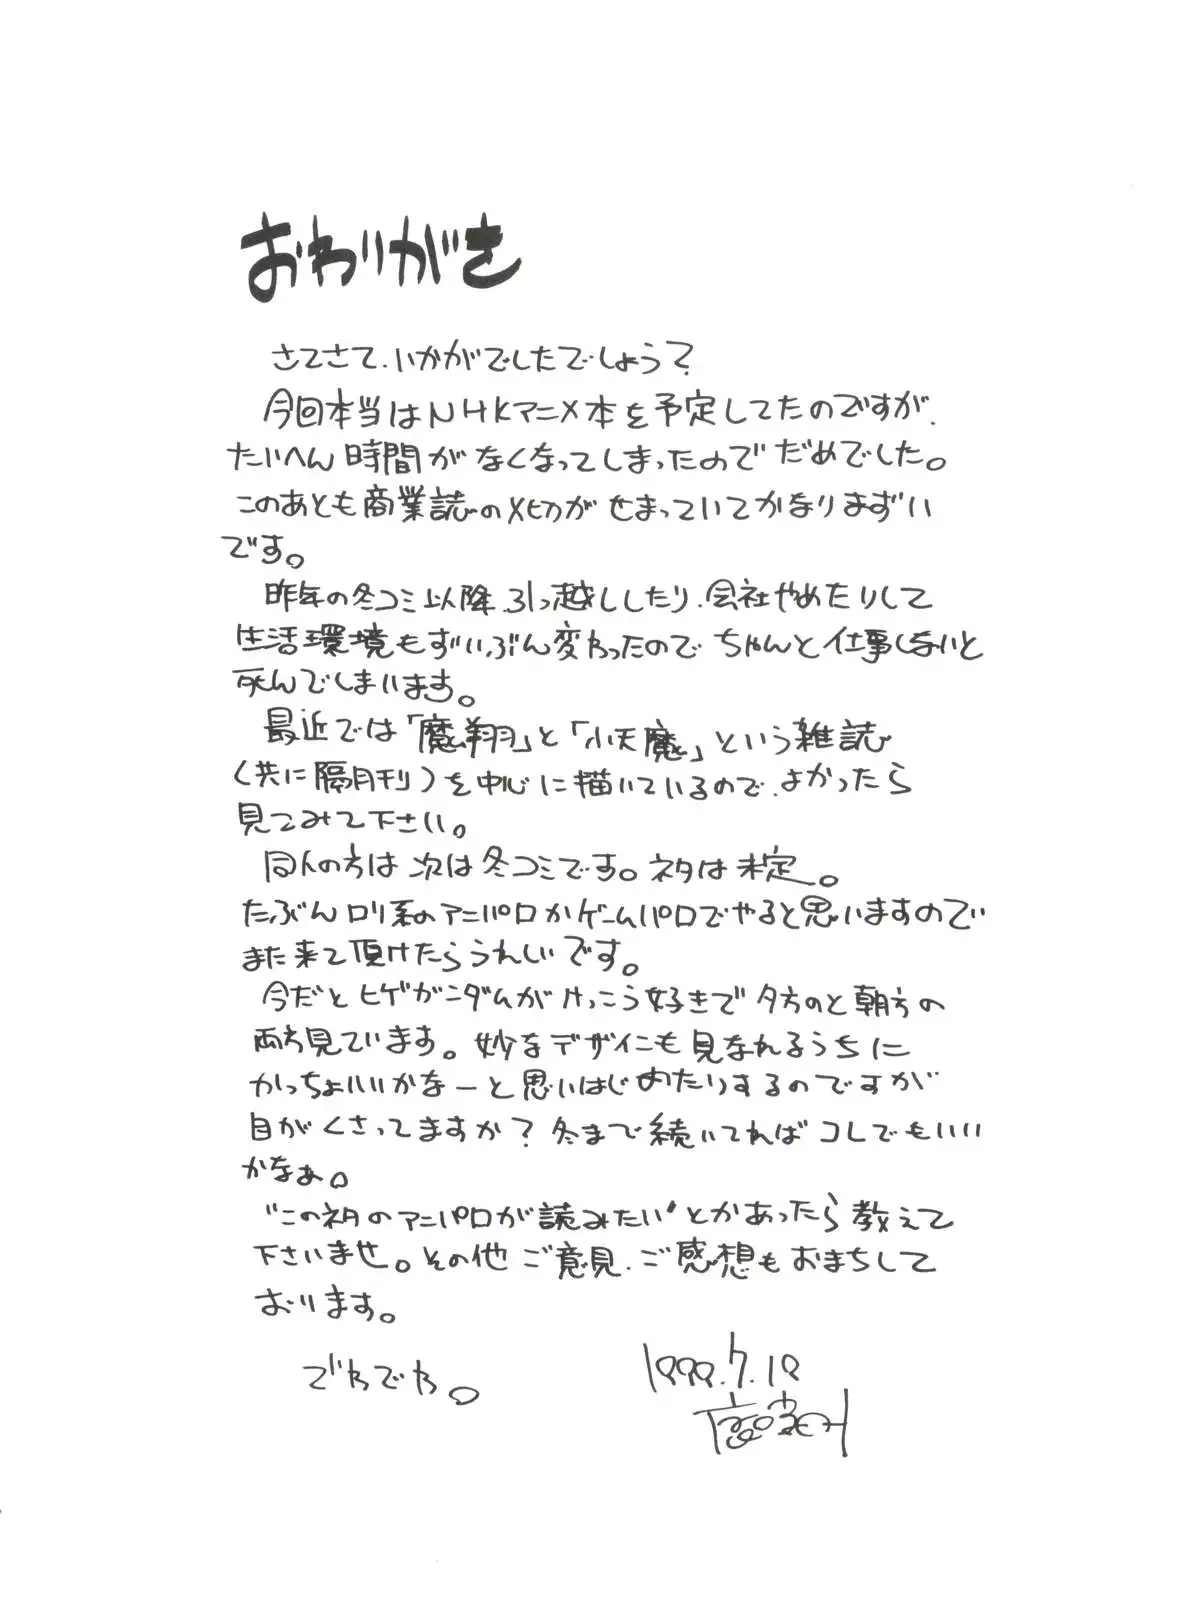 おわりがき
さてさて、いかがでしたでしょう?
今回本当はNHKアニメ本を予定してたのですが、
たいへん時間がなくなってしまったのでだめでした。
このあとも商業誌の〆切がせまっていてかなりまずい
です。
昨年の冬コミ以降、引っ越ししたり、会社やめたりして
生活環境もずいぶん変わったのでちゃんと仕事しないと
死んでしまいます。
最近では「魔翔」と「小天魔」という雑誌
(共に隔月刊)を中心に描いているので、よかったら
見てみて下さい。
同人の方は次は冬コミです。ネタは未定。
たぶんロリ系のアニパロかゲームパロでやると思いますので
また来て頂けたらうれしいです。
今だとヒゲガンダムがけっこう好きで夕方のと朝方の
両方見ています。妙なデザインも見なれるうちに
かっちょいいかなーと思いはじめたりするのですが
目がくさってますか?冬まで続いてればコレでもいい
かなぁ。
"この初のアニパロが読みたい"とかあったら教えて
下さいませ。その他ご意見、ご感想もおまちして
おります。
ではでは。
1999.7.18